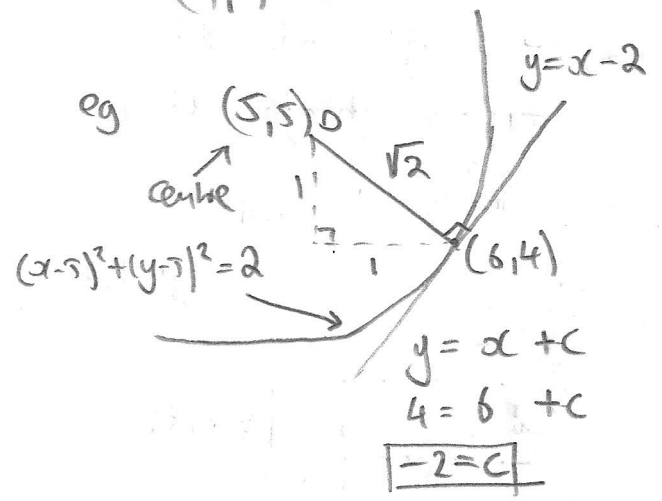 y=x-2
eg
(5,5)
centre
√2
1
1
(6,4)
(x-5)²+(y-5)²=2
y = x +c
4 = 6 +c
-2=c